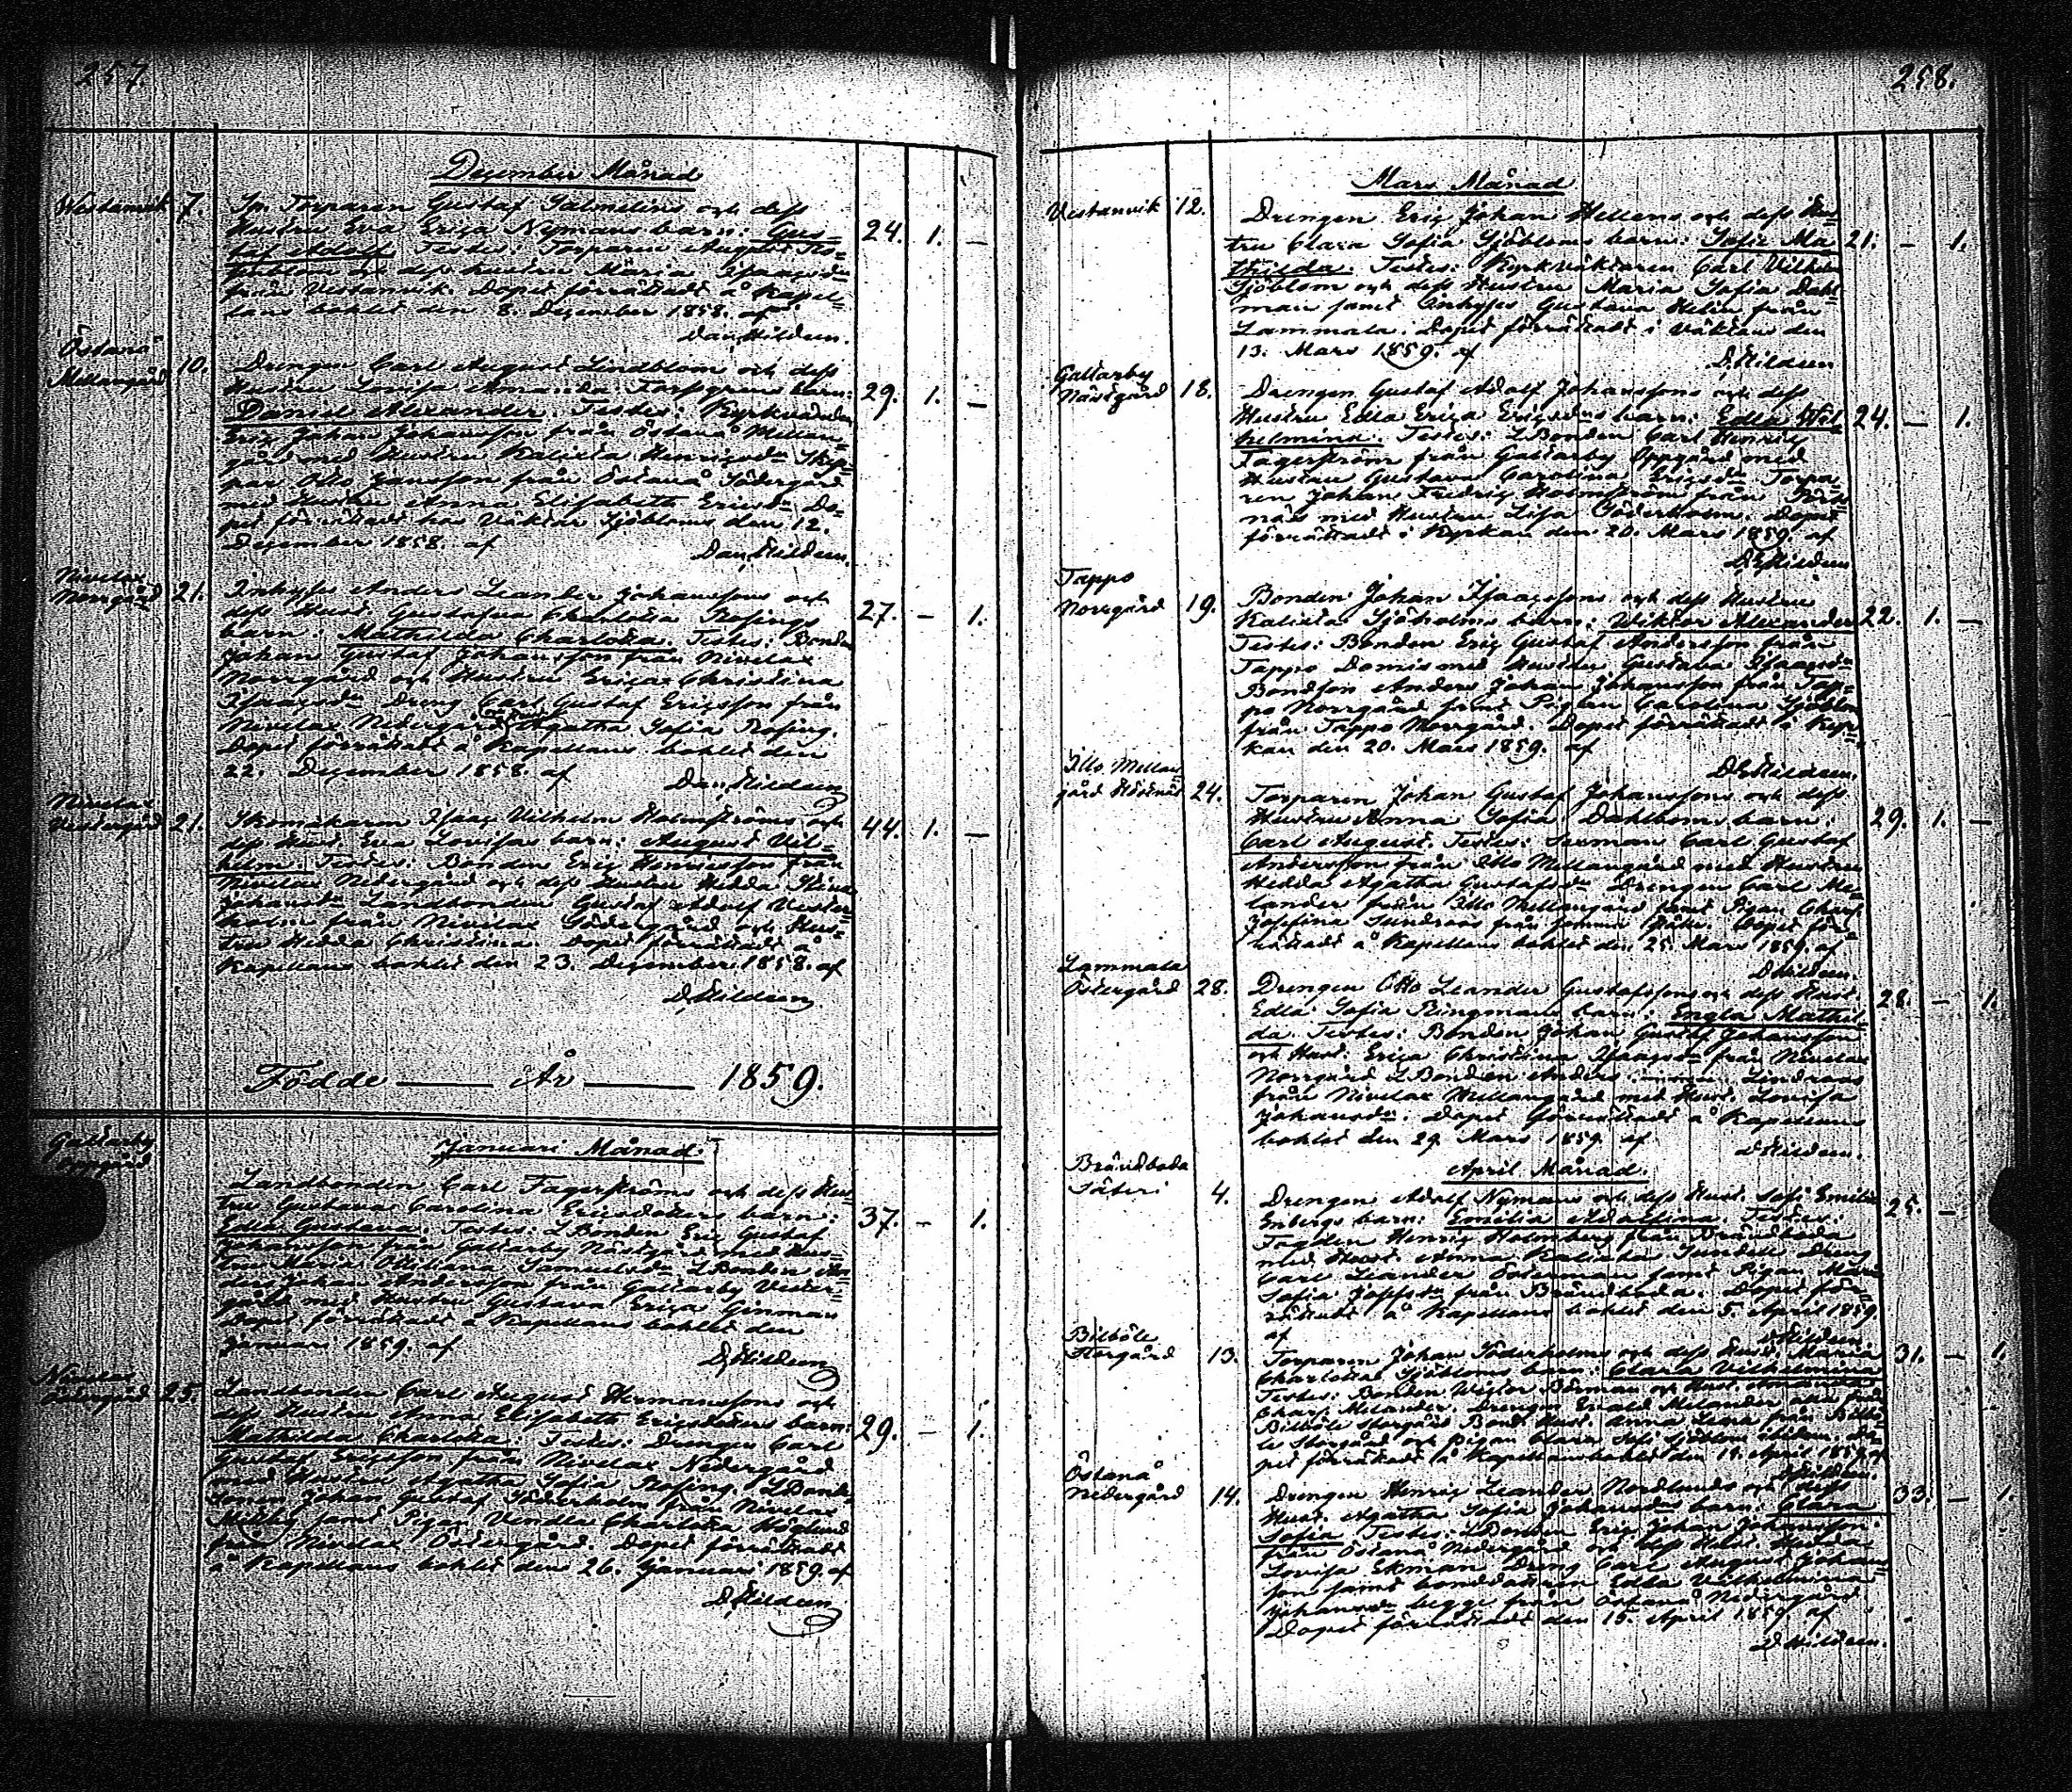 257.
December Månad
Westanvik 7. Sn. Torparen Gustaf Salmelins och dess
Hustru Eva Erica Nymans barn: Gus= 24. 1. —
taf Adolf. Testes: Torparen August
och dess hustru Maria Isaacsdr
från Vestanvik. Dopet förrättadt å Kapel=
lans bohlet den 8. December 1858. af
Dan. Hildeen.
Östanå
Mellangård 10. Drengen Carl August Lindblom och dess
Hustru Lovisa Amanda Torsgrens barn: 29. 1. —
Daniel Alexander. Testes: Kyrkväktaren
Eric Johan Johansson från Östanå Mellan=
gård med Hustru Kalista Henricsdr Skep=
par Otto Jansson från Östanå Södergård
med Hustru Anna Elisabeth Ericsdr Do=
pet förrättadt hos Väktar Sjöbloms den 12.
December 1858. af Dan. Hildeen.
Nivelax
Norrgård 21. Inhyses Anders Leander Johanssons och
dess Hust. Gustafva Charlotta Rosings 27. — 1.
barn: Mathilda Charlotta. Testes: Bonden
Johan Gustaf Johansson från Nivelax
Norrgård och Hustru Erica Christina
Isaacsdr Dreng Carl Gustaf Ericsson från
Nivelax Nedergård Agatha Sofia Rosing.
Dopet förrättadt å Kapellans bohlet den
22. December 1858. af Dan. Hildeen
Nivelax
Westergård 21. Skomakaren Isaac Vilhelm Holmströms och 44. 1. —
dess Hust. Eva Lovisas barn: August Vil=
helm. Testes: Bonden Eric Henricsson från
Nivelax Nedergård och dess Hustru Hedda Stina
Johansdr Landbonden Gustaf Adolf Vester=
holm från Nivelax Södergård och Hus=
tru Hedda Christina. Dopet förrättadt å
Kapellans bohlet den 23. December 1858. af
D. Hildeen
Födde — År — 1859.
Januari Månad.
Galtarby
Oppgård
Landbonden Carl Fagerströms och dess Hus=
tru Gustava Carolina Ericsdotters barn: 37. — 1.
Edla Gustava. Testes: LBonden Eric Gustaf
Johansson från Galtarby Näsegård med Hus=
tru Maria Ottiliana Samuelsdr LBonden An=
ders Johan Andersson från Galtarby Vester=
gård med Hustru Gustava Erica Ginman
Dopet förrättadt å Kapellans bohlet den
Januari 1859. af
D. Hildeen
Nivelax
Södergård 25. Landbonden Carl August Hermanssons och
dess Hustru Anna Elisabeth Ericsdotters barn: 29. — 1.
Mathilda Charlotta. Testes: Drengen Carl
Gustaf Ericsson från Nivelax Nedergård
med Hustru Agatha Sofia Rosing. LBonde=
sonen Johan Gustaf Söderholm från Nivelax
samt Pigan Vendla Charlotta Höglund
från Nivelax Östergård. Dopet förrättadt
å Kapellans bohlet den 26. Januari 1859. af
D. Hildeen
258.
Mars Månad
Vestanvik 12. Drengen Eric Johan Hellens och dess Hus=
tru Clara Sofia Sjöbloms barn: Sofie Ma= 21. — 1.
thilda. Testes: Kyrkväktaren Carl Vilhelm
Sjöblom och dess Hustru Maria Sofia Dahl=
man samt Inhyses Gustava Helin från
Lammala. Dopet förrättadt i Väktan den
13. Mars 1859. af D. Hildeen
Galtarby
Näsegård 18. Drengen Gustaf Adolf Johanssons och dess
Hustru Edla Erica Ericsdrs barn: Edla Wil= 24. — 1.
helmina. Testes: LBonden Carl Henric
Fagerström från Galtarby Oppgård med
Hustru Gustava Carolina Ericsdr Torpa=
ren Johan Fredric Holmström från
näs med Hustru Lisa Söderholm. Dopet
förrättadt i Kyrkan den 20. Mars 1859. af
D. Hildeen
Tappo
Norrgård 19. Bonden Johan Isaacssons och dess Hustru
Kalista Sjöholms barn: Wiktor Alexander 22. 1. —
Testes: Bonden Eric Gustaf Andersson från
Tappo Domis med Hustru Gustava Isaacsdr
Bondson Anders Johan Johansson från Tap=
po Norrgård samt Pigan Carolina Sjöblom
från Tappo Norrgård. Dopet förrättadt i Kyr=
kan den 20. Mars 1859. af
D. Hildeen.
Illo Mellan
gård 24. Torparen Johan Gustaf Johanssons och dess
Hustru Anna Sofia Dahlboms barn: 29. 1. —
Carl August. Testes: Sexman Carl Gustaf
Andersson från Illo Mellangård med Hustru
Hedda Agatha Gustafsdr Drengen Carl Me=
lander från Illo Mellangård samt Pigan Charl.
Josefina Sundroos från samma ställe. Dopet för=
rättadt å Kapellans bohlet den 25. Mars 1859. af
D. Hildeen.
Lammala
Östergård 28. Drengen Otto Leander Gustafssons och dess Hust.
Edla Sofia Ringmans barn: Engla Mathil= 28. — 1.
da. Testes: Bonden Johan Gustaf Johansson
och Hust: Erica Christina Isaacsdr från Nivelax
Norrgård LBonden Anders Lindroos
från Nivelax Mellangård med Hust. Lovisa
Johansdr. Dopet förrättadt å Kapellans
bohlet den 29. Mars 1859. af D. Hildeen.
April Månad.
Brändboda
Säteri 4. Drengen Adolf Nymans och dess Hust. Sofi Emilia
Enbergs barn: Emilia Adolfina. Testes: 25. —
Henric Holmberg från Brändboda
med Hust. Anna Kalista Sundell Dreng
Carl Leander Österman samt Pigan Maria
Sofia Josefsdr från Brändboda. Dopet för=
rättadt å Kapellans bohlet den 5. April 1859.
af D. Hildeen
Bilböle
Storgård 13. Torparen Johan Söderholms och dess Hust. Maria 31. — 1.
Charlotta Sjöbloms barn: Clara Vilhelmina
Testes: Bonden Wictor Börman och Hust. Amanda
Charl. Melander. Drengen Evald Melander från
Bilböle Storgård Bond. Hust. Anna Lena från Bilbö=
le Storgård och Pigan Clara Sofi Sjöblom ibidem. Do=
pet förrättadt å Kapellansbohlet den 14. April 1859. af
D. Hildeen.
Östanå
Nedergård 14. Drengen Henric Leander Nordlunds och dess
Hust. Agatha Sofia Johansdrs barn: Clara 33. — 1.
Sofia. Testes: LBonden Eric Johan Johansson
från Östanå Nedergård och dess Hust. Hedda
Lovisa Ekman Dreng Carl August Johans=
son samt bonddottren Edla Vilhelmina
Johansdr begge från Östanå Nedergård
Dopet förrättadt den 15. April 1859. af
D. Hildeen.